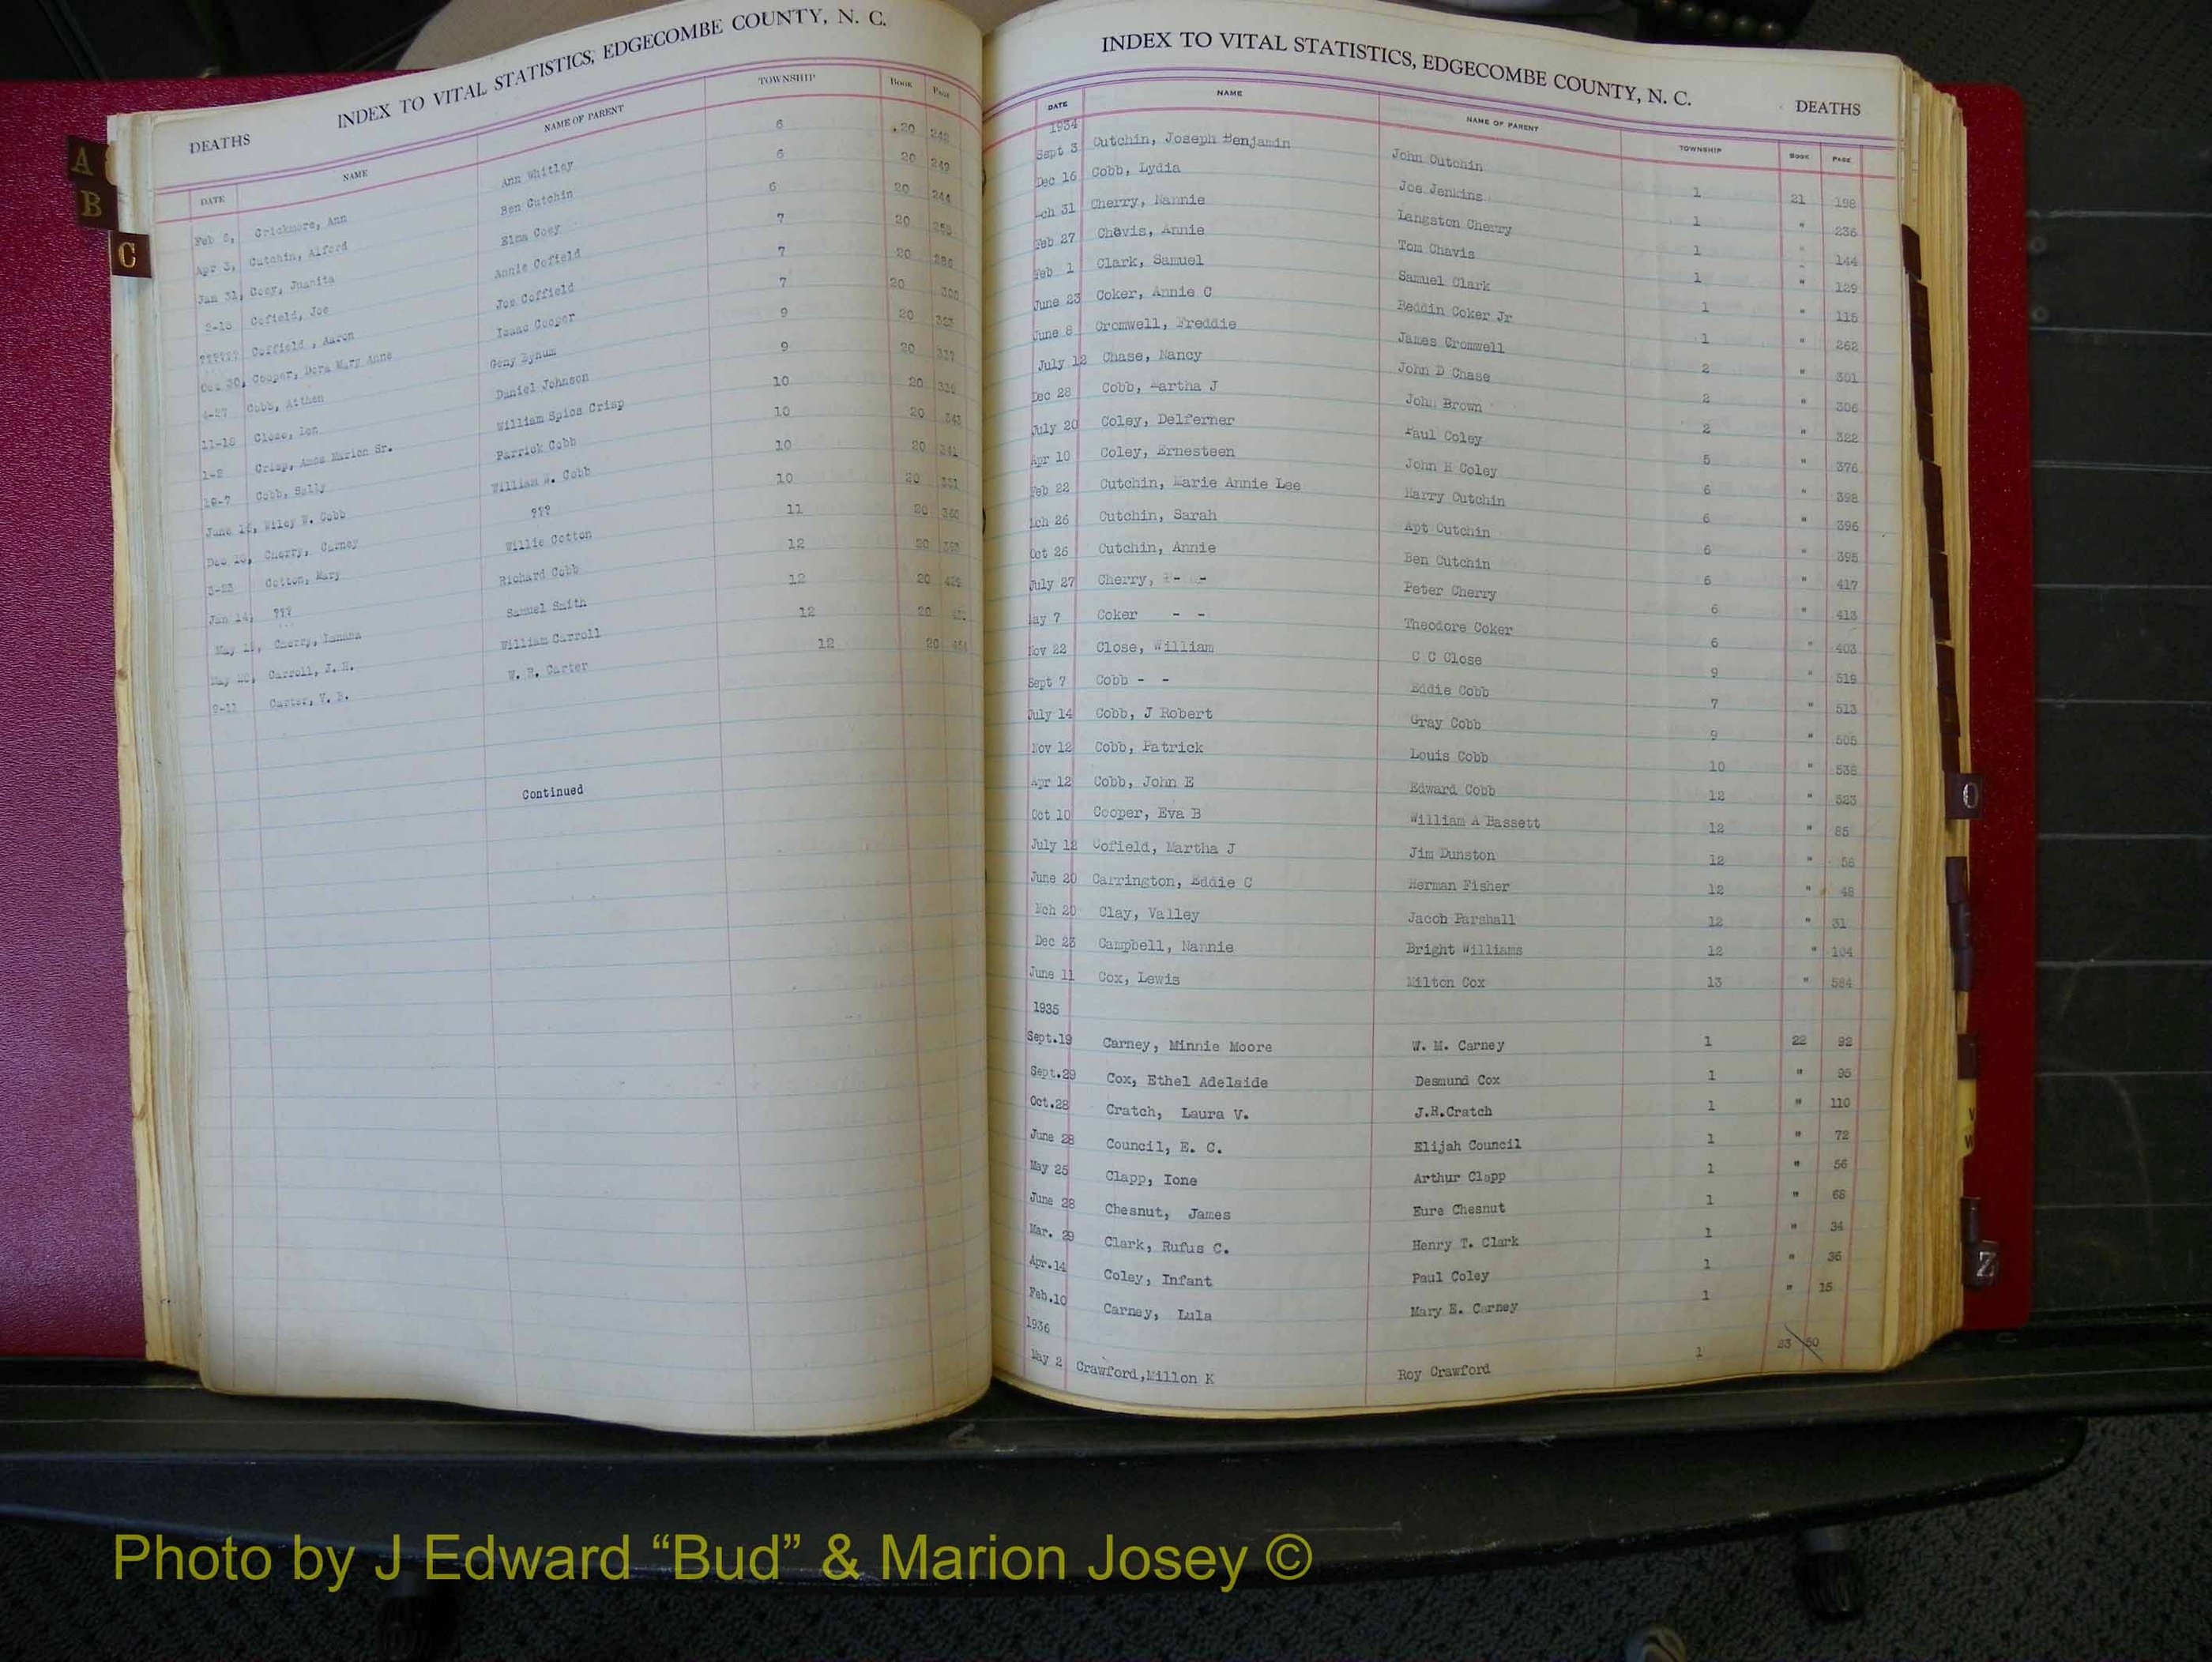 A
B
C
INDEX TO VITAL STATISTICS, EDGECOMBE COUNTY, N. C.
DEATHS
DATE NAME NAME OF PARENT TOWNSHIP BOOK PAGE
Feb 6, Crickmore, Ann Ann Whitley 6 20
Apr 3, Cutchin, Alford Ben Cutchin 6 20 249
Jan 31, Coey, Juanita Elma Coey 6 20 244
2-18 Cofield, Joe Annie Cofield 7 20
?????? Coffield , Aaron Joe Coffield 7 20
Oct 30, Cooper, Dora Mary Anne Isaac Cooper 7 20
4-27 Cobb, Aithen Geny Bynum 9 20
11-18 Close, Lon Daniel Johnson 9 20
1-8 Crisp, Amos Marion Sr. William Spico Crisp 10 20
Cobb, Sally Parrick Cobb 10 20
June 15, Wiley W. Cobb William W. Cobb 10 20
Cherry, Carney ??? 10 20
3-23 Cotton, Mary Willie Cotton 11 20
Jan 14, ??? Richard Cobb 12 20
Cherry, Samuel Smith 12 20
Carroll, J. H. William Carroll 12 20
9-11 Carter, V. B. W. R. Carter 12 20
Continued
INDEX TO VITAL STATISTICS, EDGECOMBE COUNTY, N. C.
DEATHS
DATE NAME NAME OF PARENT TOWNSHIP BOOK PAGE
1934
Sept 3 Cutchin, Joseph Benjamin John Cutchin 1 21 198
Dec 16 Cobb, Lydia Joe Jenkins 1 " 236
ch 31 Cherry, Nannie Langston Cherry 1 " 144
Feb 27 Chavis, Annie Tom Chavis 1 " 129
Feb 1 Clark, Samuel Samuel Clark 1 " 115
June 23 Coker, Annie C Reddin Coker Jr 1 " 262
June 8 Cromwell, Freddie James Cromwell 2 " 301
July 12 Chase, Nancy John D Chase 2 " 306
Dec 28 Cobb, Martha J John Brown 2 " 322
July 20 Coley, Delferner Paul Coley 5 " 376
Apr 10 Coley, Ernesteen John H Coley 6 " 398
Feb 22 Cutchin, Marie Annie Lee Harry Cutchin 6 " 396
ch 26 Cutchin, Sarah Apt Cutchin 6 " 395
Oct 26 Cutchin, Annie Ben Cutchin 6 " 417
July 27 Cherry, - - Peter Cherry 6 " 413
May 7 Coker - - Theodore Coker 6 " 403
Nov 22 Close, William C C Close 9 " 519
Sept 7 Cobb - - Eddie Cobb 7 " 513
July 14 Cobb, J Robert Gray Cobb 9 " 505
Nov 12 Cobb, Patrick Louis Cobb 10 " 538
Apr 12 Cobb, John E Edward Cobb 12 " 523
Oct 10 Cooper, Eva B William A Bassett 12 " 85
July 12 Cofield, Martha J Jim Dunston 12 " 58
June 20 Carrington, Eddie C Herman Fisher 12 " 48
Mch 20 Clay, Valley Jacob Parshall 12 " 31
Dec 23 Campbell, Nannie Bright Williams 12 " 104
June 11 Cox, Lewis Milton Cox 13 " 584
1935
Sept.19 Carney, Minnie Moore W. M. Carney 1 22 92
Sept.29 Cox, Ethel Adelaide Desmund Cox 1 " 95
Oct.28 Cratch, Laura V. J.R.Cratch 1 " 110
June 28 Council, E. C. Elijah Council 1 " 72
May 25 Clapp, Ione Arthur Clapp 1 " 56
June 28 Chesnut, James Eure Chesnut 1 " 68
Mar. 29 Clark, Rufus C. Henry T. Clark 1 " 34
Apr.14 Coley, Infant Paul Coley 1 " 36
Feb.10 Carney, Lula Mary E. Carney 1 " 15
1936
May 2 Crawford,Millon K Roy Crawford 1 23 50
O
V
W
Z
Photo by J Edward “Bud” & Marion Josey ©